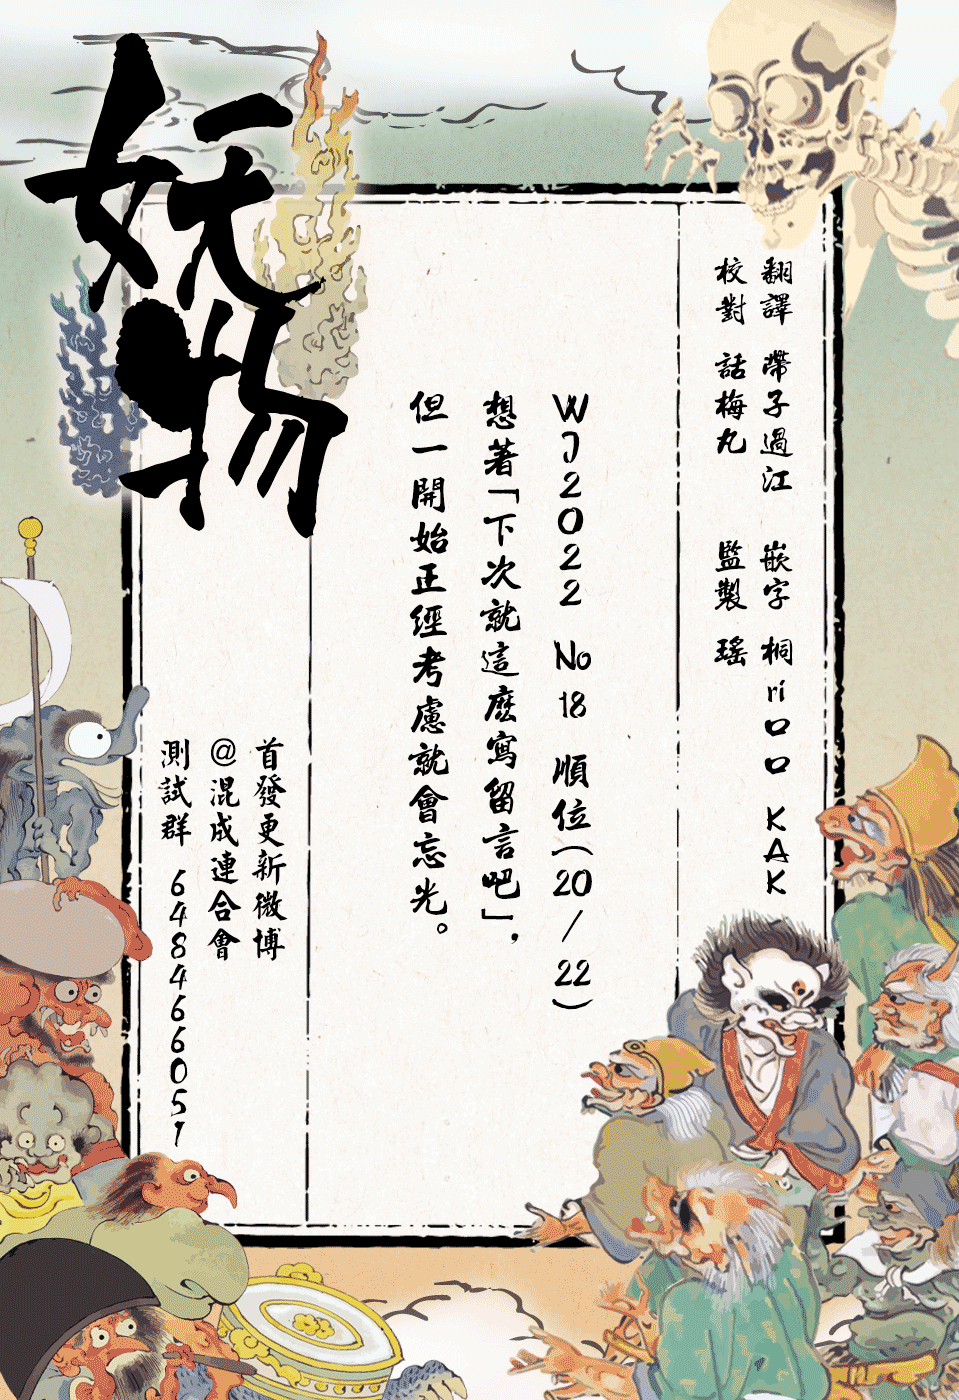 妖物
翻譯 帶子過江 嵌字 桐ri口口 KAK
校對 話梅丸 監製 瑤
WJ2022 No18 順位(20/22)
想著「下次就這麼寫留言吧」,
但一開始正經考慮就會忘光。
首發更新微博
@混成連合會
測試群 6484466051